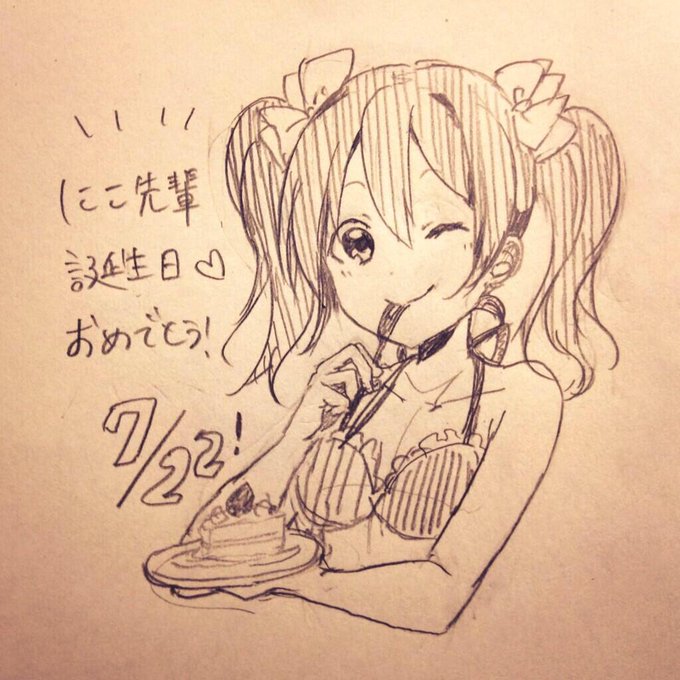 にこ先輩
誕生日♡
おめでとう!
7/22!